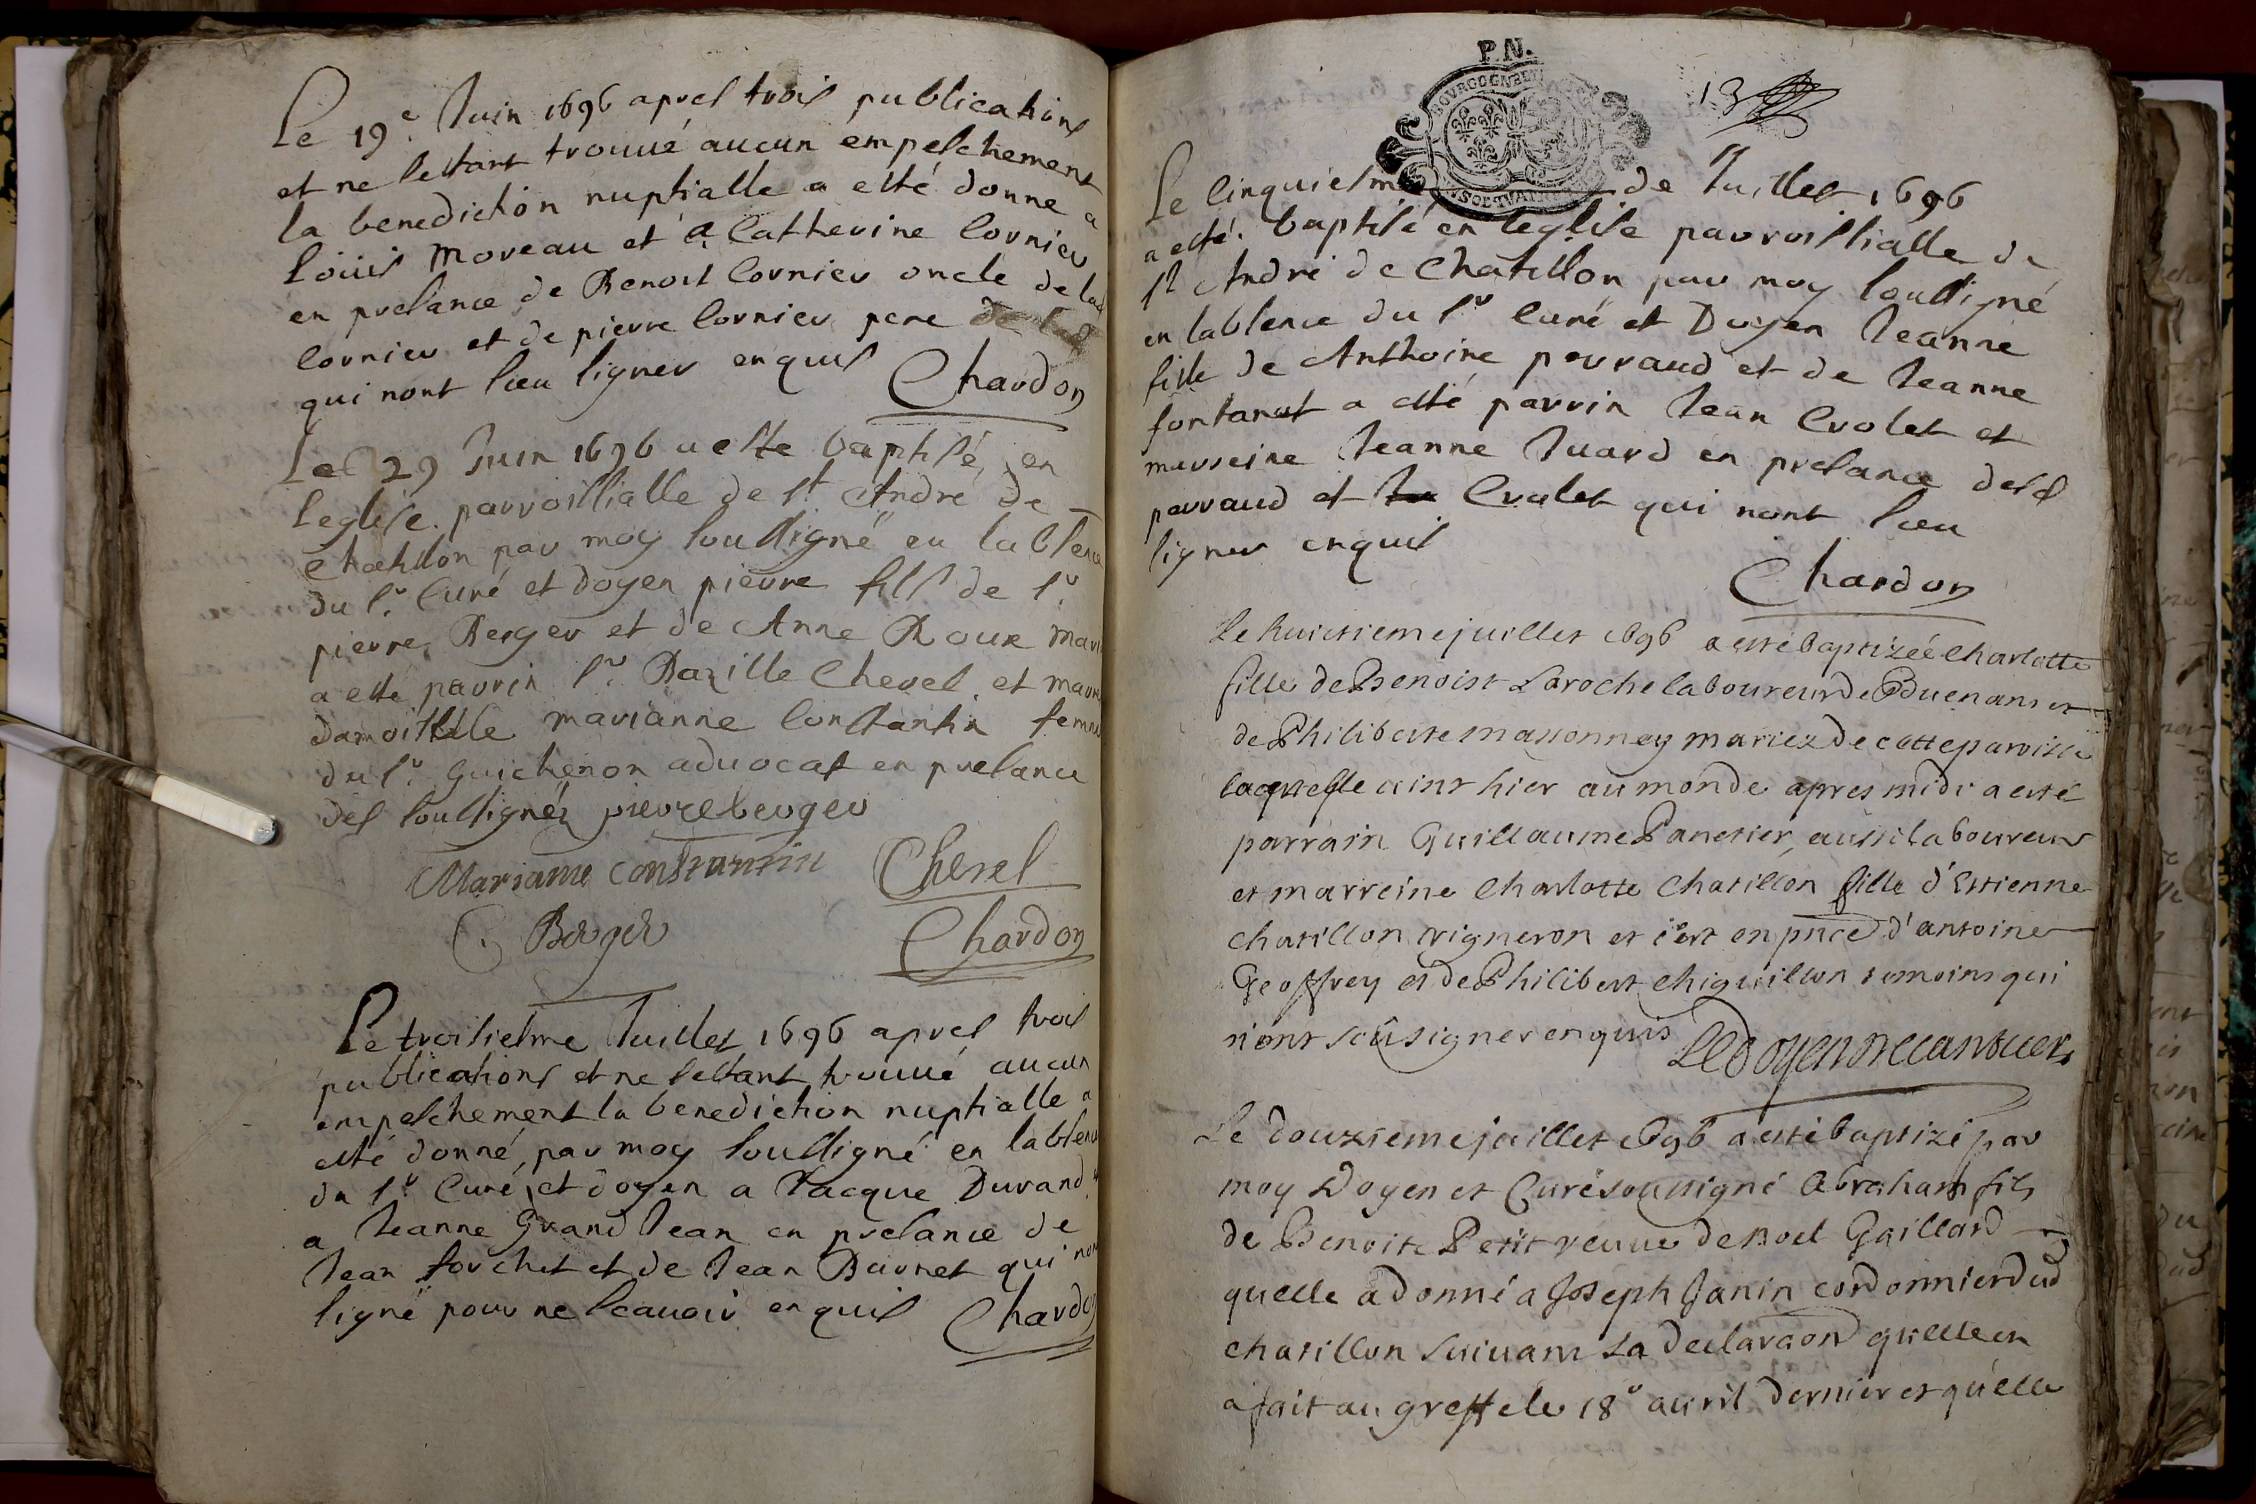 Le 19e Juin 1696 apres trois publications
et ne sestant trouué aucun empeschement
la benediction nuptialle a esté donne a
Loüis Moreau et a Catherine Cornier
en presance de Benoist Cornier oncle de lad
Cornier et de pierre Cornier pere de lad
qui nont sceu signer enquis
Chardon
Le 29 Juin 1696 a este baptisé en
leglise parroissialle de st André de
Chatillon par moy soussigné en labsence
du sr Curé et doyen pierre fils de sr
pierre Berger et de Anne Roux mari
a esté parrin sr Bazille Chevel et marr
damoiselle marianne Constantin femme
du sr Guichenon aduocat en presance
des soussignéz pierre berger
Marianne Constantin Chevel
C. Berger Chardon
Le troisiesme Juillet 1696 apres trois
publications et ne sestant trouué aucun
empeschement la benediction nuptialle a
esté donné par moy soussigné en labsence
du sr Curé et doyen a Jacque Durand
a Jeanne Grand Jean en presance de
Jean forchet et de Jean Burnet qui nont
signé pour ne scauoir enquis Chardon
P.N.
13
Le cinquiesme de Juillet 1696
a esté baptisé en leglise parroissialle de
st André de Chatillon par moy soussigné
en labsence du sr Curé et Doyen Jeanne
fille de Anthoine perraud et de Jeanne
fontanet a esté parrin Jean Crolet et
marreine Jeanne Juard en presance desd
perraud et Crolet qui nont sceu
signer enquis
Chardon
Le huictieme juillet 1696 a esté baptizée Charlotte
fille de Benoist Laroche laboureur de Buenans et
de Philiberte Massonney mariez de cette paroisse
laquelle vint hier au monde apres midi a esté
parrain Guillaume Panetier aussi laboureur
et marreine Charlotte Chatillon fille d'Estienne
Chatillon vigneron et c'est en pnce d'antoine
Geoffrey et de Philibert Chiquillon temoins qui
n'ont scû signer enquis
Le douzieme juillet 1696 a esté baptizé par
moy Doyen et Curé soussigné Abraham fils
de Benoite Petit veuue de Noel Gaillard
quelle a donné a Joseph Janin cordonnier dud
chatillon suiuant sa declaraon quelle en
a fait au greffe le 18e auril dernier et qu'elle